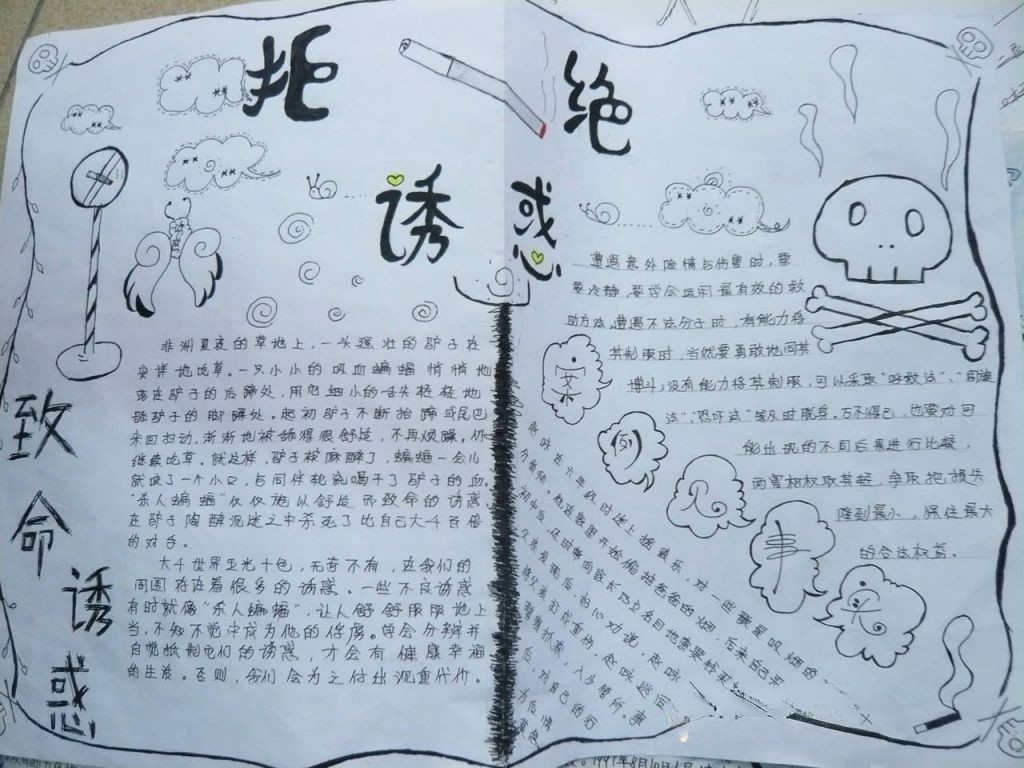 拒
绝
诱
惑
致
命
诱
惑
诱惑
非洲夏夜的草地上,一头强壮的驴子在
安详地吃草。一只小小的吸血蝙蝠悄悄地
落在驴子的后蹄处,用它细小的舌头轻轻地
舔驴子的脚踝处。起初驴子不断抬蹄或尾巴
来回扫动,渐渐地被舔得很舒适,不再烦躁,仍
继续吃草。就这样,驴子被麻醉了,蝙蝠一会儿
就咬了一个小口,与同伴轮流喝干了驴子的血。
“杀人蝙蝠”仅仅施以舒适而致命的诱惑
在驴子陶醉沉迷之中杀死了比自己大千百倍
的对手。
大千世界五光十色,无奇不有,在我们的
周围存在着很多的诱惑。一些不良诱惑
有时就像“杀人蝙蝠”,让人舒舒服服地上
当,不知不觉中成为他的俘虏。学会分辨并
自觉抵制它们的诱惑,才会有健康幸福
的生活。否则,我们会为之付出沉重代价。
遭遇意外险情与伤害时,需
要冷静,要学会运用最有效的救
助方法,遭遇不法分子时,有能力将
其制服时,当然要勇敢地同其
搏斗;没有能力将其制服,可以采取“呼救法”、“周旋
法”、“恐吓法”等及时脱身。万不得已,也要对可
能出现的不同后果进行比较,
两害相权取其轻,争取把损失
降到最小,保住最大
的合法权益。
例
事
赵咏在六年级时迷上摇滚乐,对一些歌星吸烟的
初中后,
父亲发现后,担心劝说,赵咏
将父亲打成重伤,赵咏逃征
后,对自己的行
1997年8月10日